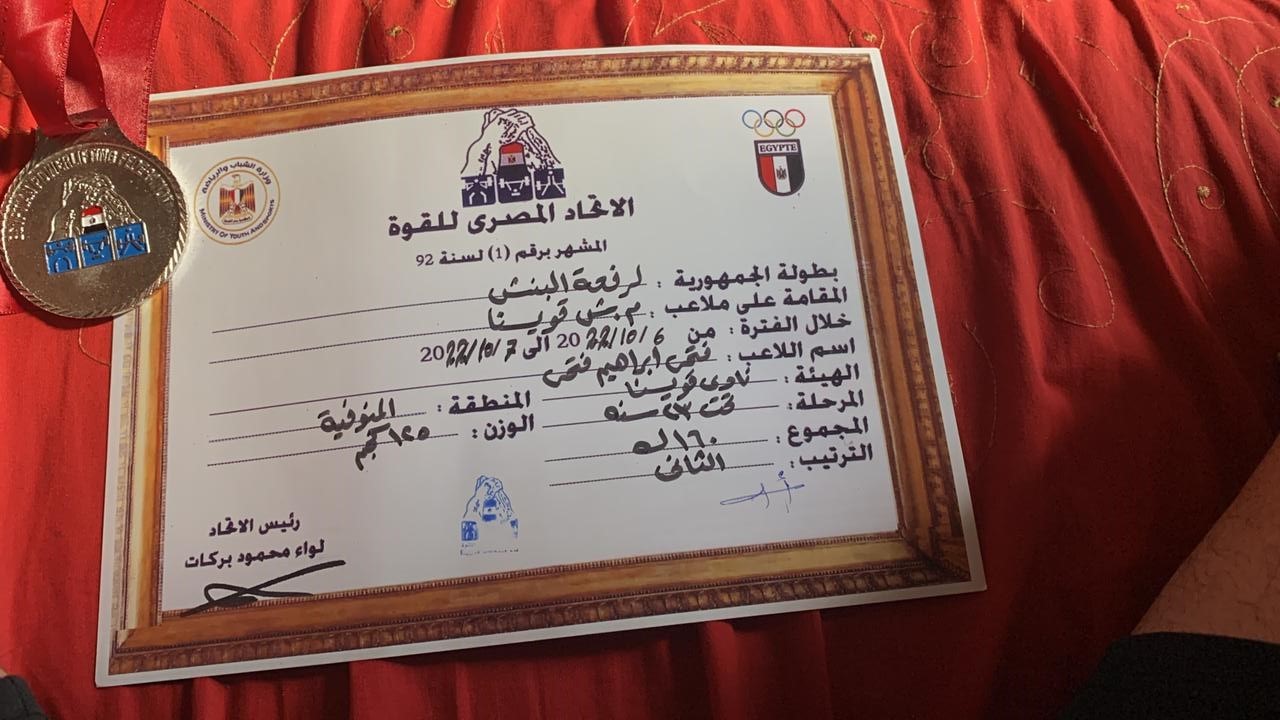 EGYPTIAN POWERLIFTING FEDERATION
وزارة الشباب والرياضة
MINISTRY OF YOUTH AND SPORTS
EGYPTE
الاتحاد المصرى للقوة
المشهر برقم (1) لسنة 92
بطولة الجمهورية : لرفعة البنش
المقامة على ملاعب : م.ش قويسنا
خلال الفترة : من 2022/10/6 الى 2022/10/7
اسم اللاعب : فتحى ابراهيم فتحى
الهيئة : نادى قويسنا المنطقة : المنوفية
المرحلة : تحت ٢٣ سنه الوزن : ١٢٥ كجم
المجموع : ١٦٠ ك
الترتيب : الثانى
رئيس الاتحاد
لواء محمود بركات